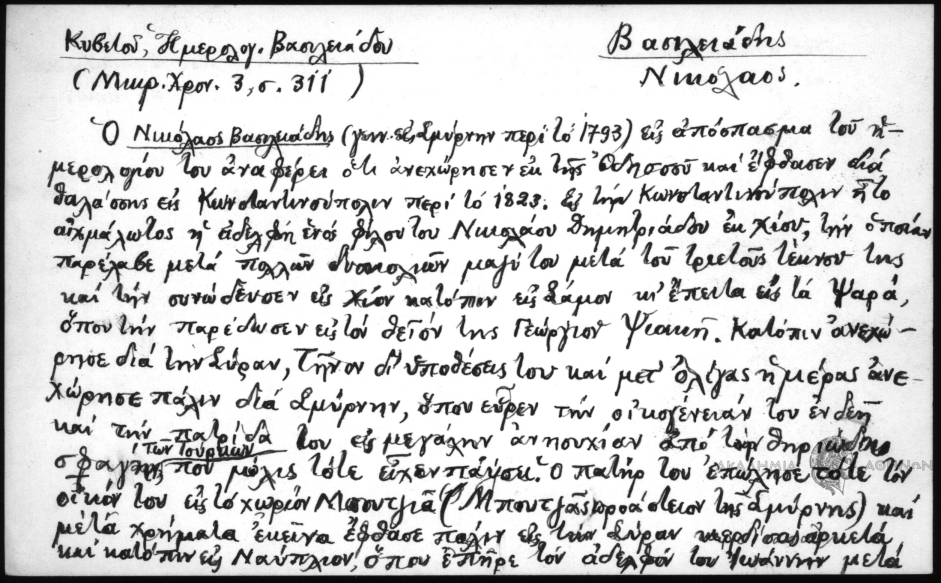 Κυβετού, Ἡμερολογ. Βασιλειάδου
Βασιλειάδης
(Μικρ. Χρον. 3, σ. 311)
Νικόλαος.
Ὁ Νικόλαος Βασιλειάδης (γενν. εἰς Σμύρνην περί τό 1793) εἰς ἀπόσπασμα τοῦ ἡ-
μερολογίου του ἀναφέρει ὅτι ἀνεχώρησεν ἐκ τῆς Ὀδησσοῦ καί ἔφθασεν διά
θαλάσσης εἰς Κωνσταντινούπολιν περί τό 1823. Εἰς τήν Κωνσταντινούπολιν ἦτο
αἰχμάλωτος ἡ ἀδελφή ἑνός φίλου του Νικολάου Δημητριάδου ἐκ Χίου, τήν ὁποίαν
παρέλαβε μετά πολλῶν δυσκολιῶν μαζύ του μετά τοῦ τριετοῦς τέκνου της
καί τήν συνώδευσεν εἰς Χίον κατόπιν εἰς Σάμον κι' ἔπειτα εἰς τά Ψαρά,
ὅπου τήν παρέδωσεν εἰς τόν θεῖόν της Γεώργιον Ψιακῆ. Κατόπιν ἀνεχώ-
ρησε διά τήν Σύραν, Τῆνον δι' ὑποθέσεις του καί μετ' ὀλίγας ἡμέρας ἀνε-
χώρησε πάλιν διά Σμύρνην, ὅπου εὗρεν τήν οἰκογένειάν του ἐνδεῆ
καί τήν πατρίδα του εἰς μεγάλην ἀνησυχίαν ἀπό τήν θηριώδη
τῶν Τούρκων
σφαγήν πού μόλις τότε εἶχεν παύσει. Ὁ πατήρ του ἐπώλησε τότε τόν
ΑΚΑΔΗΜΙΑ ΑΘΗΝΩΝ
οἶκόν του εἰς τό χωρίον Μπουτζιᾶ (Μπουτζᾶς προάστειον τῆς Σμύρνης) καί
μετά χρήματα ἐκεῖνα ἔφθασε πάλιν εἰς τήν Σύραν κερδίσας ἀρκετά
καί κατόπιν εἰς Ναύπλιον, ὅπου ἐπῆρε τόν ἀδελφόν του Ἰωάννην μετά